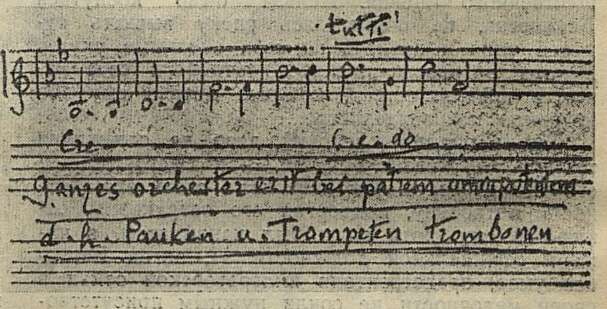 tutti
Cre Cre do
ganzes orchester erst bei patrem omnipotentem
d. h. Pauken u. Trompeten trombonen